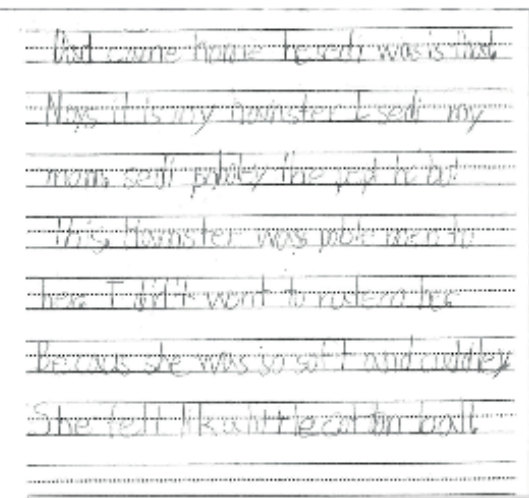 Dad came home he sedi was is that
Nays it is my hamster I sedi my
mom sedi the
This hamster was mean to
here I did't wont to
Becaus she was so soft and cuddley
She felt lik a little cotton ball